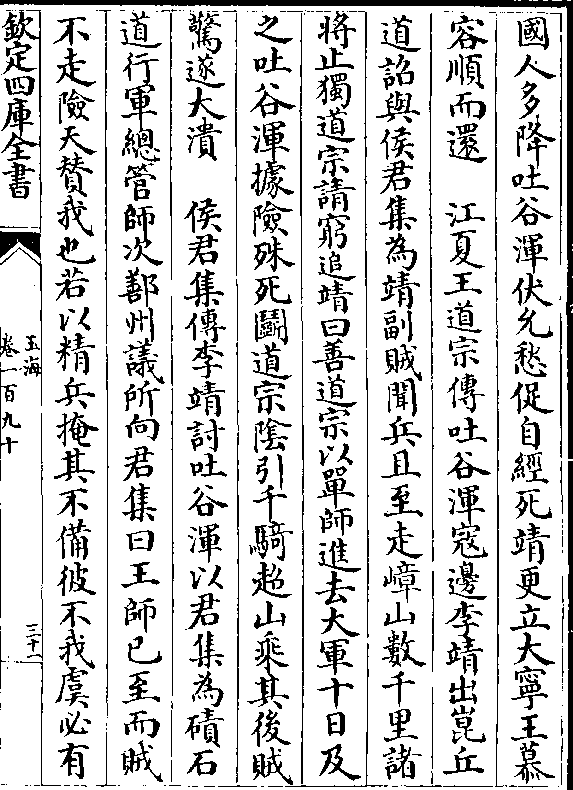 國人多降吐谷渾伏允愁促自經死靖更立大寧王慕
容順而還　江夏王道宗傳吐谷渾寇邊李靖出崑丘
道詔與侯君集為靖副賊聞兵且至走嶂山數千里諸
將止獨道宗請窮追靖曰善道宗以單師進去大軍十日及
之吐谷渾據險殊死鬭道宗陰引千騎超山乘其後賊
驚遂大潰　侯君集傳李靖討吐谷渾以君集為磧石
道行軍總管師次鄯州議所向君集曰王師已至而賊
不走險天贊我也若以精兵掩其不備彼不我虞必有
欽定四庫全書
玉海
卷一百九十
三十一